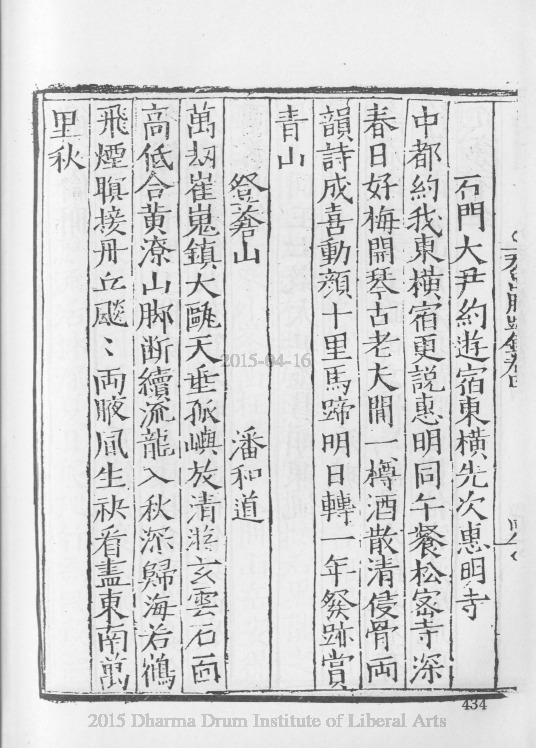 石門大尹約遊宿東橫先次惠明寺
中都約我東橫宿更説惠明同午餐松密寺深
春日好梅開琴古老夫閒一樽酒散清侵骨兩
韻詩成喜動顔十里馬蹄明日轉一年發跡賞
青山
登蒼山
潘和道
萬刼崔嵬鎮大甌天垂孤嶼放清游玄雲石面
高低合黄潦山脚断續流龍入秋深歸海若鶴
飛煙暝接丹丘颼〻兩腋風生袂看盡東南萬
里秋
2015-04-16
434
2015 Dharma Drum Institute of Liberal Arts